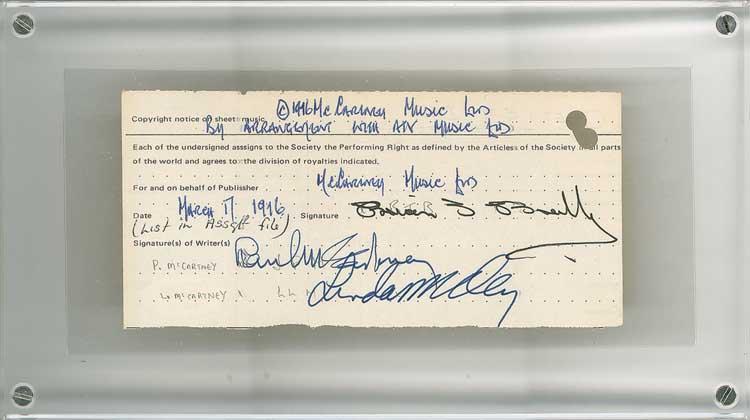 ©1976 McCartney Music Ltd
Copyright notice on sheet music
By ARRANGEMENT WITH ATV MUSIC LTD
Each of the undersigned asssigns to the Society the Performing Right as defined by the Articless of the Society in all parts
of the world and agrees to the division of royalties indicated.
For and on behalf of Publissher McCartney Music Ltd
Date March 17, 1976 Signature
(List in Assgt file)
Signature(s) of Writer(s)
P. McCARTNEY Paul McCartney
L. McCARTNEY Linda McCartney